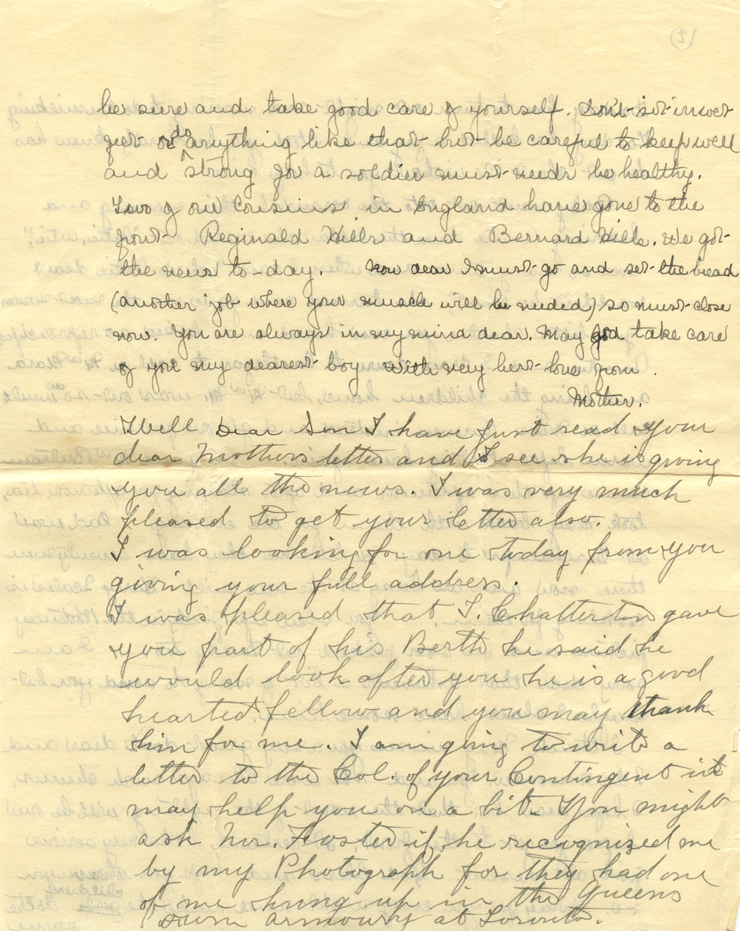 (2)
be sure and take good care of yourself. Don't sit in wet
feet or do anything like that but be careful to keep well
and strong for a soldier must needs be healthy.
Two of our Cousins in England have gone to the
front Reginald Hills and Bernard Hills. We got
the news to-day. Now dear I must go and set the bread
(another job where your muscle will be needed) so must close
now. You are always in my mind dear. May God take care
of you my dearest boy with very best love from.
Mother.
Well Dear Son I have just read your
dear Mothers letter and I see she is giving
you all the news. I was very much
pleased to get your letter also.
I was looking for one today from you
giving your full address.
I was pleased that T. Chatterton gave
you part of his Berth he said he
would look after you he is a good
hearted fellow and you may thank
him for me. I am going to write a
letter to the Col. of your Contingent it
may help you on a bit. You might
ask Mr. Foster if he recognized me
by my Photograph for they had one
of me hung up in the Queens
Own armoury at Toronto.